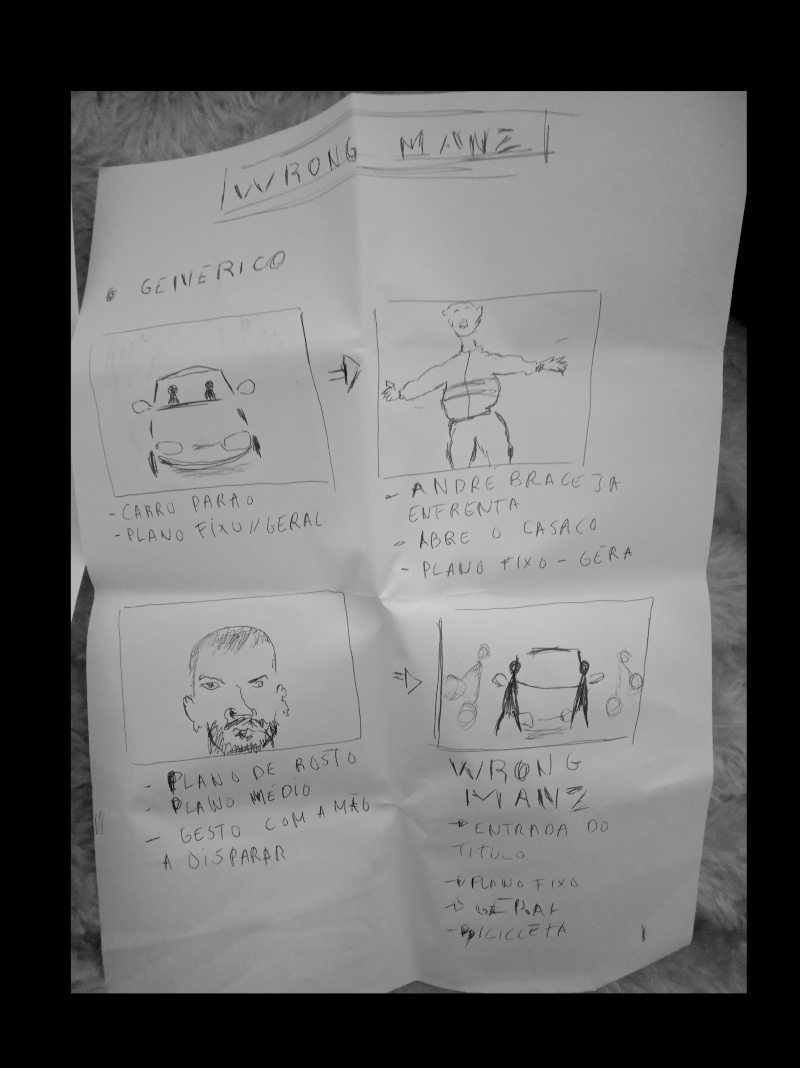 WRONG MANZ
GENÉRICO
- CARRO PARAO
- PLANO FIXO // GERAL
- ANDRE BRACEJA
ENFRENTA
- ABRE O CASACO
- PLANO FIXO - GERA
- PLANO DE ROSTO
- PLANO MÉDIO
- GESTO COM A MÃO
A DISPARAR
WRONG
MANZ
ENTRADA DO
TITULO
PLANO FIXO
GERAL
- BICICLETA